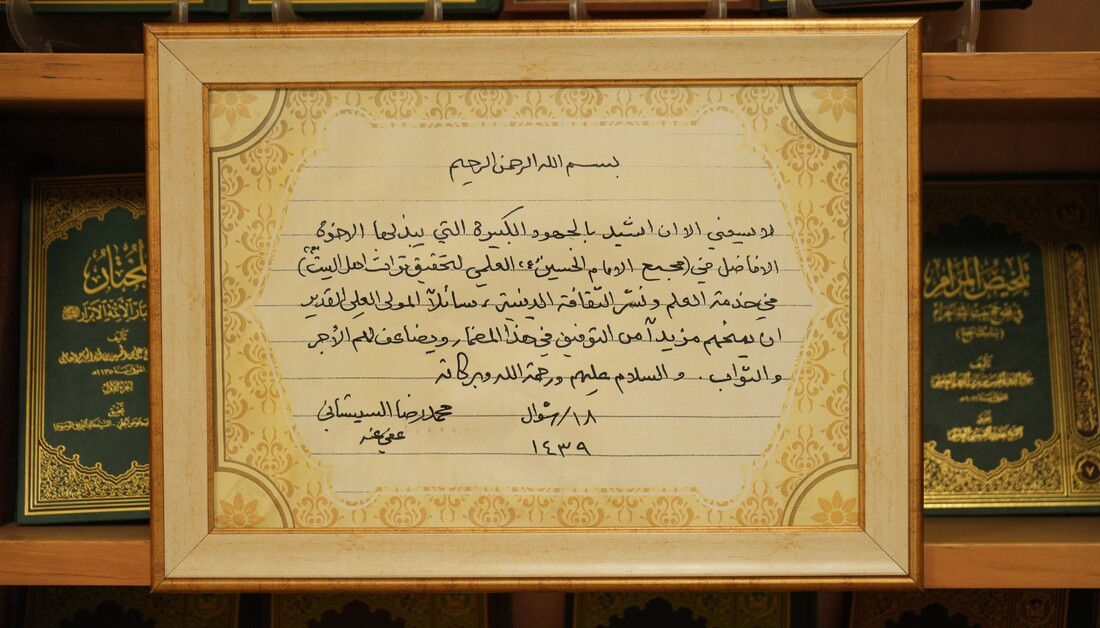 بسم الله الرحمن الرحيم
لا يسعني الا ان اشيد بالجهود الكبيرة التي يبذلها الاخوة
الافاضل في (مجمع الامام الحسين ع العلمي لتحقيق تراث اهل البيت ع)
في خدمة العلم ونشر الثقافة الدينية، سائلاً المولى العلي القدير
ان يمنحهم مزيداً من التوفيق في هذا المضمار ويضاعف لهم الأجر
والثواب. والسلام عليهم ورحمة الله وبركاته
١٨/شوال محمد رضا السيستاني
١٤٣٩ عفي عنه
المختار
تأليف
الجزء الأول
تحقيق
تلخيص المرام
في
تأليف
تحقيق
٧